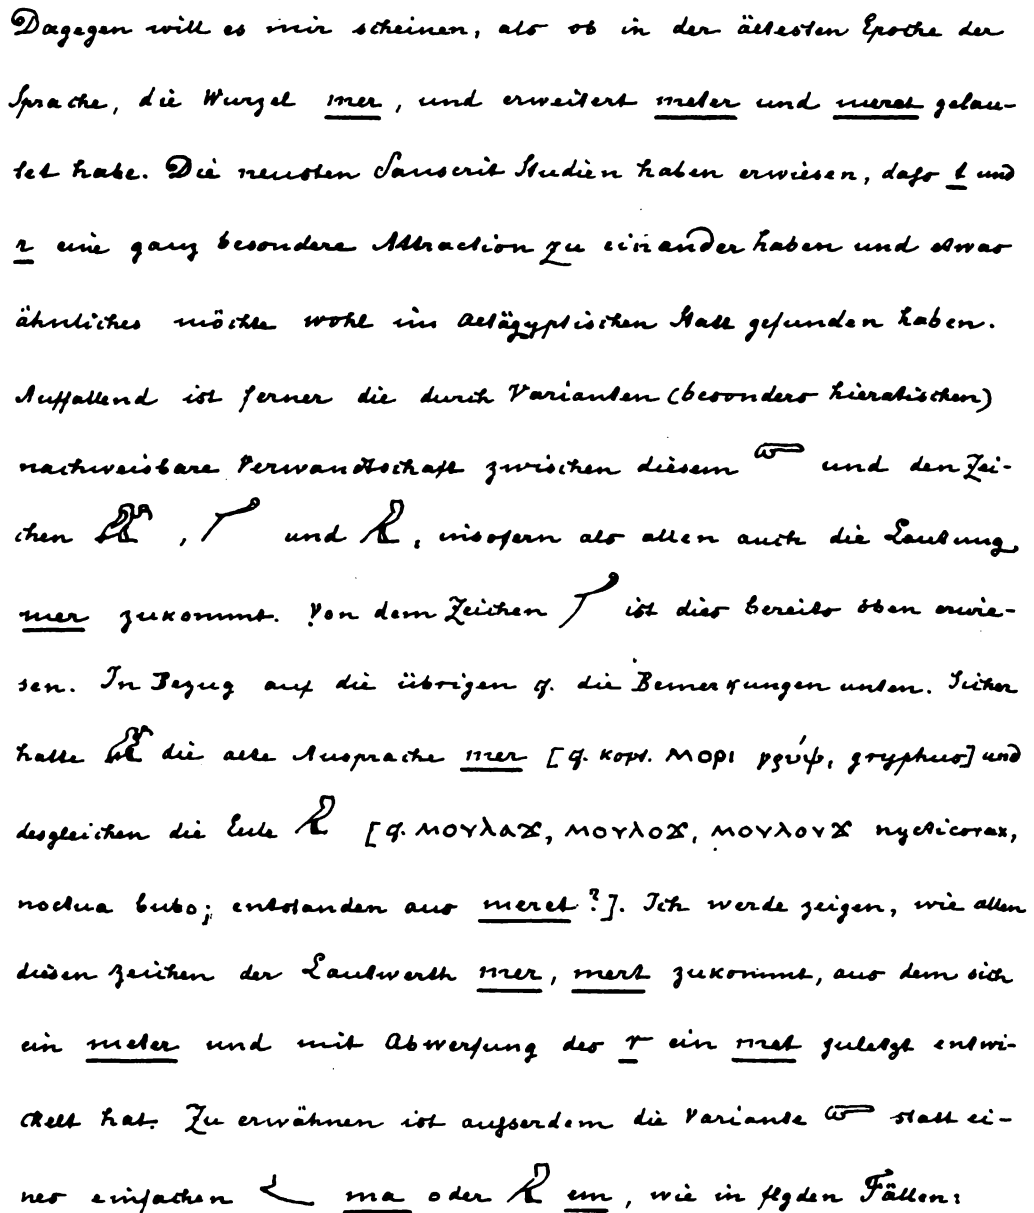 Dagegen will es mir scheinen, als ob in der ältesten Epoche der
Sprache, die Wurzel mer, und erweitert meter und meret gelau-
tet habe. Die neusten Sanscrit Studien haben erwiesen, dass t und
r eine ganz besondere Attraction zu einander haben und etwas
ähnliches möchte wohl im Aetägyptischen Statt gefunden haben.
Auffallend ist ferner die durch Varianten (besonders hieratischen)
nachweisbare Verwandtschaft zwischen diesem und den Zei-
chen , und , insofern als allen auch die Lautung
mer zukommt. Von dem Zeichen ist dies bereits oben erwie-
sen. In Bezug auf die übrigen cf. die Bemerkungen unten. Sicher
hatte die alte Ausprache mer [cf. kopt. ⲙⲟⲣⲓ γρύψ, gryphus] und
desgleichen die Eule [cf. ⲙⲟⲩⲗⲁϫ, ⲙⲟⲩⲗⲟϫ, ⲙⲟⲩⲗⲟⲩϫ nycticorax,
noctua bubo; entstanden aus meret?]. Ich werde zeigen, wie allen
diesen Zeichen der Lautwerth mer, mert zukommt, aus dem sich
ein meter und mit Abwerfung des r ein met zuletzt entwi-
ckelt hat. Zu erwähnen ist ausserdem die Variante statt ei-
nes einfachen ma oder em, wie in flgden Fällen: